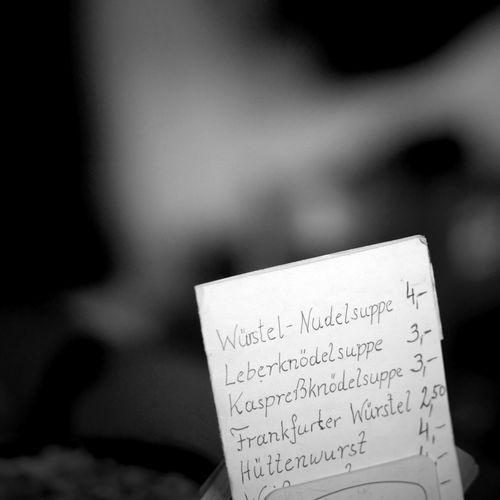 Würstel-Nudelsuppe 4,-
Leberknödelsuppe 3,-
Kaspreßknödelsuppe 3,-
Frankfurter Würstel 2,50
Hüttenwurst 4,-